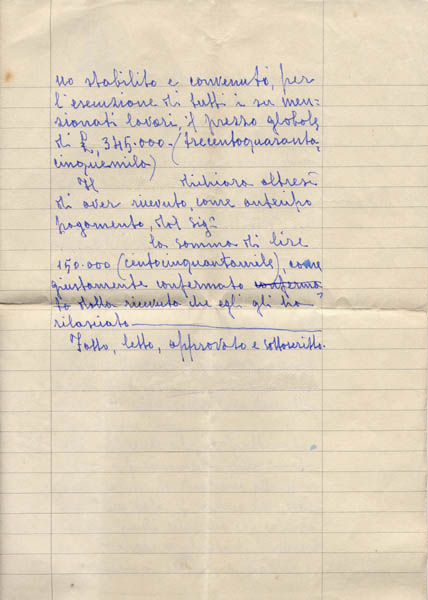 no stabilito e convenuto, per
l'esecuzione di tutti i su men=
zionati lavori, il prezzo globale
di £. 345.000 - (trecentoquaranta=
cinquemila)
Il dichiara altresì
di aver ricevuto, come anticipo
pagamento, dal Sig.
la somma di lire
150.000 (centocinquantamila), come
giustamente confermato conferma
to dalla ricevuta che egli gli ha
rilasciato
Fatto, letto, approvato e sottoscritto.